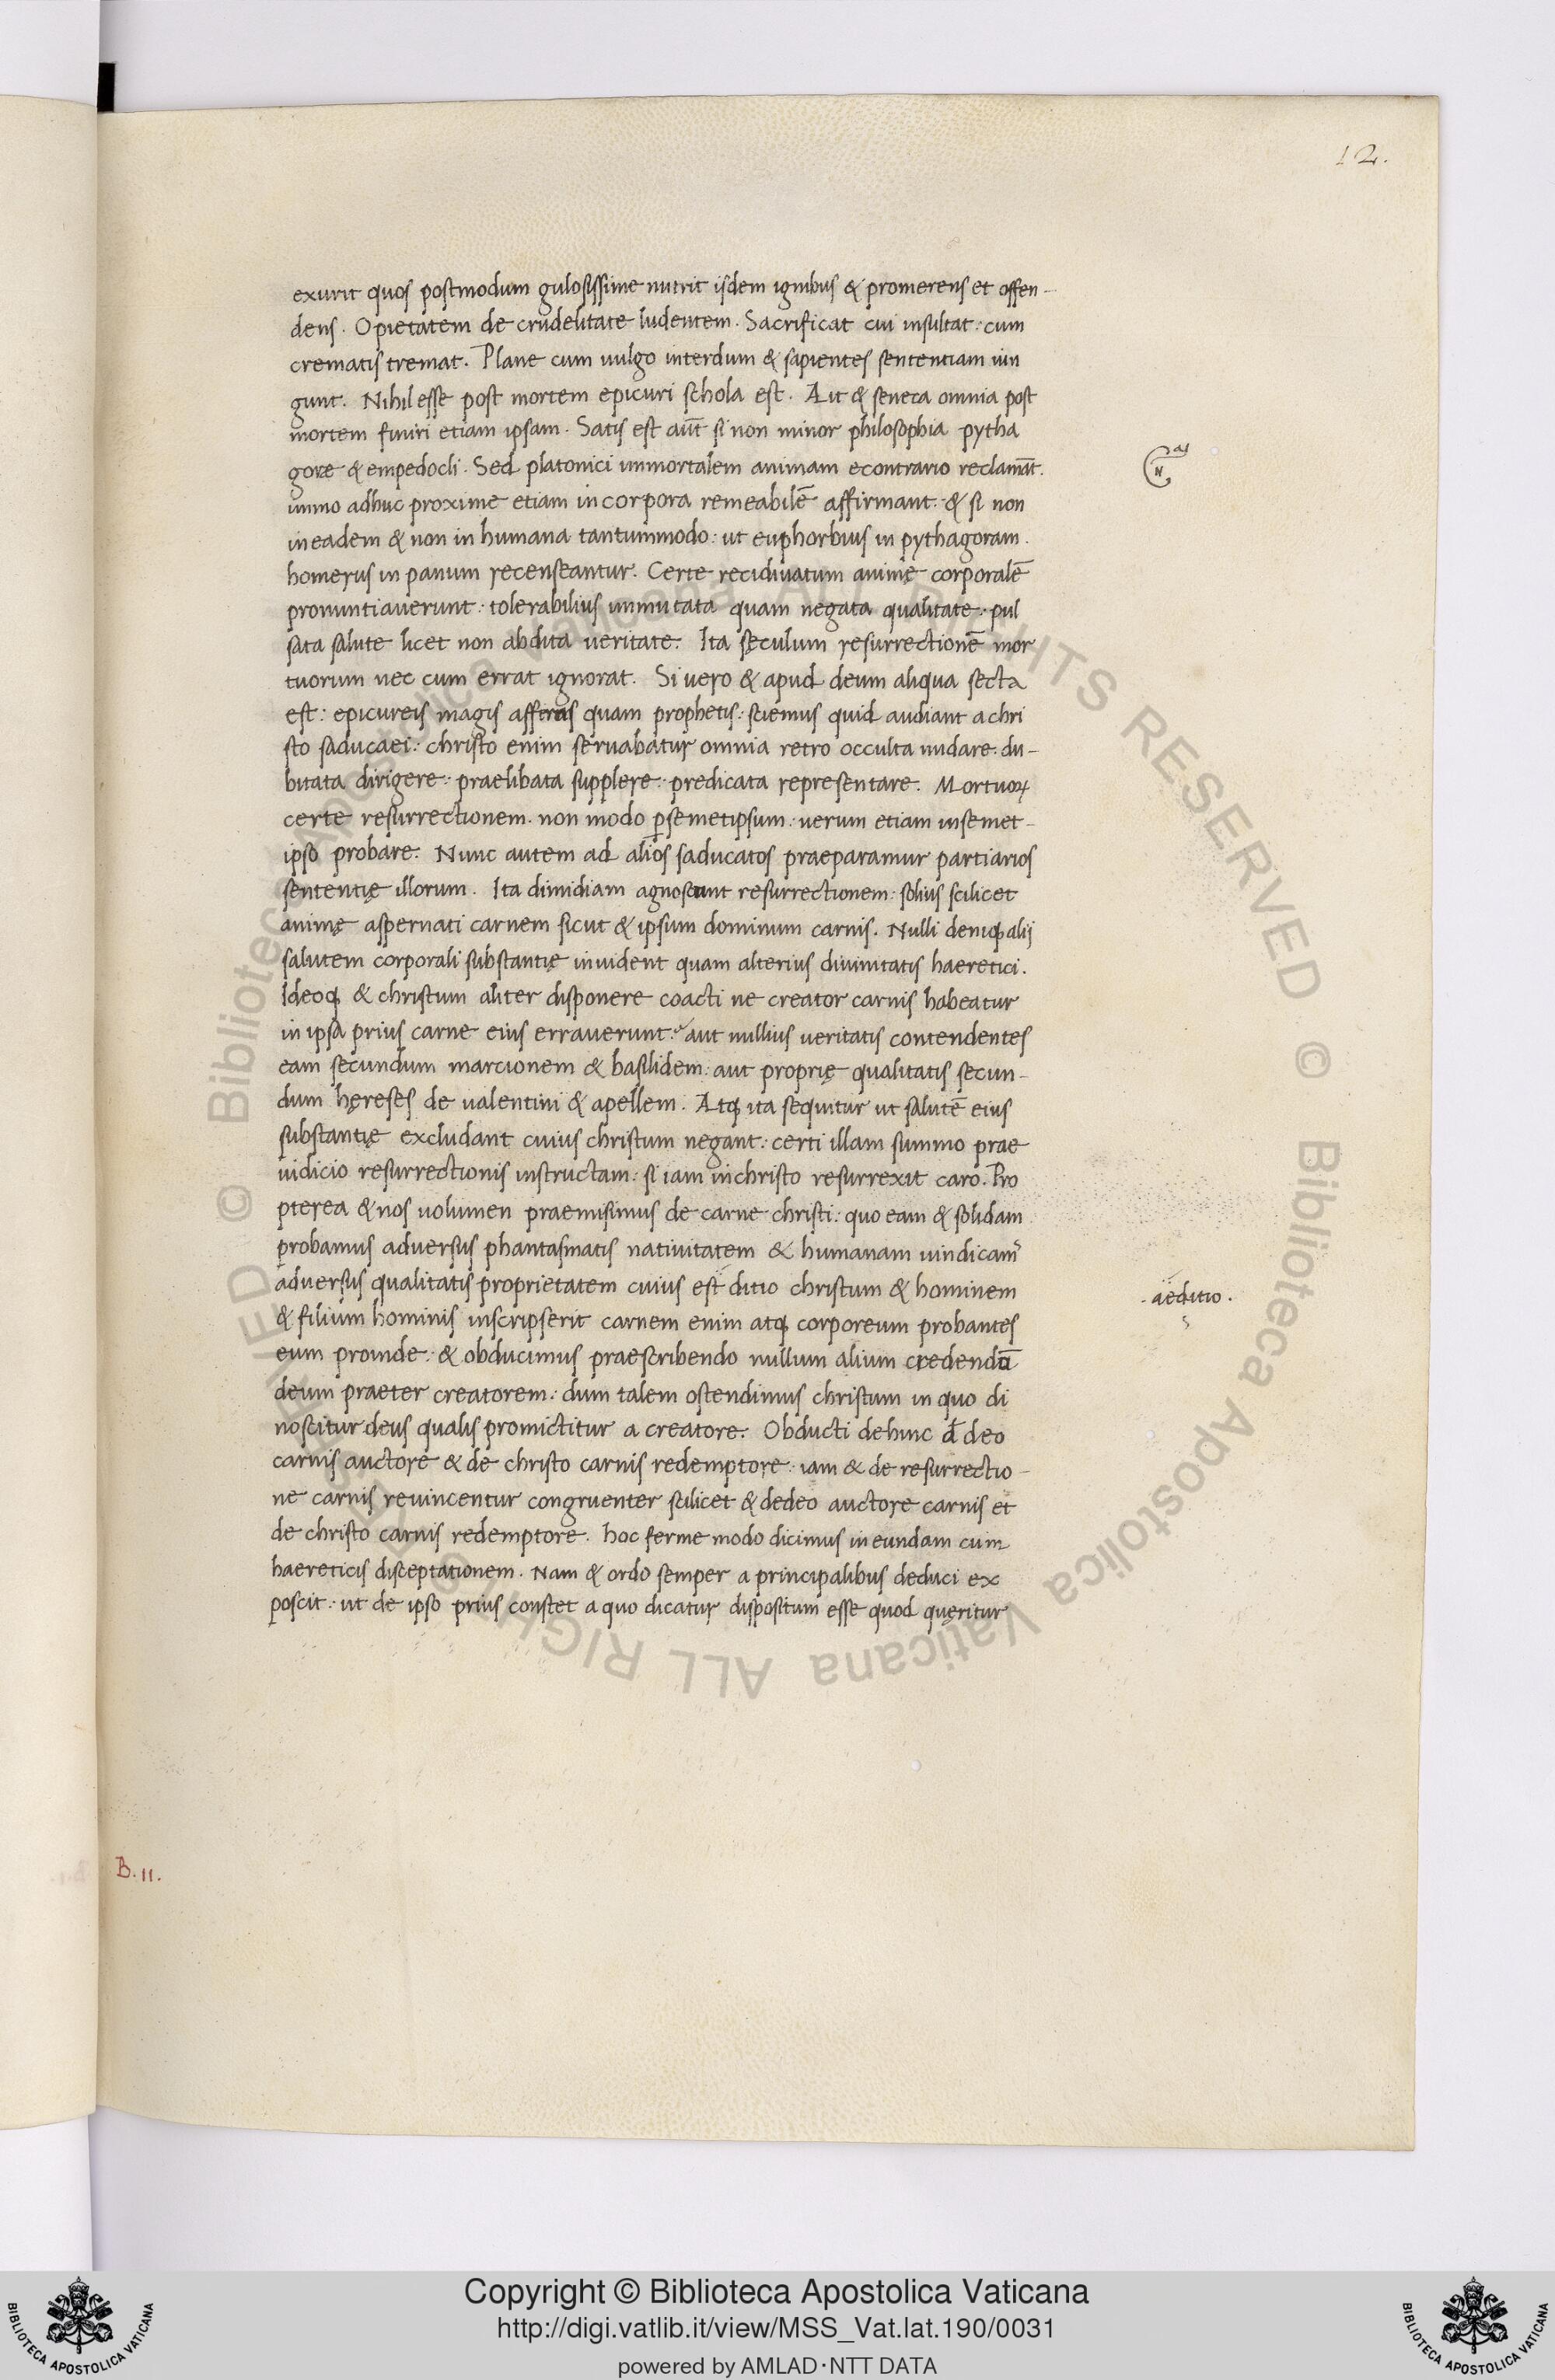 12.
exurit quos postmodum gulosissime nutrit isdem ignibus & promerens et offen-
dens. O pietatem de crudelitate ludentem. Sacrificat cui insultat: cum
crematis tremat. Plane cum uulgo interdum & sapientes sententiam iun
gunt. Nihil esse post mortem epicuri schola est. Ait & seneca omnia post
mortem finiri etiam ipsam. Satis est aut̄ si non minor philosophia pytha
gorę & empedocli. Sed platonici immortalem animam econtrario reclamāt.
immo adhuc proxime etiam in corpora remeabilē affirmant: & si non
in eadem & non in humana tantummodo: ut euphorbius in pythagoram.
homerus in panum recenseantur. Certe recidiuatum animę corporalē
pronuntiauerunt: tolerabilius immutata quam negata qualitate: pul
sata salute licet non abdita ueritate. Ita sęculum resurrectionē mor
tuorum nec cum errat ignorat. Si uero & apud deum aliqua secta
est: epicureis magis affinis quam prophetis: sciemus quid audiant a chri
sto saducaei: christo enim seruabatur omnia retro occulta nudare: du-
bitata dirigere: praelibata supplere: predicata representare. Mortuoꝝ
certe resurrectionem. non modo ꝑ semetipsum: uerum etiam in semet-
ipso probare. Nunc autem ad alios saducaeos praeparamur partiarios
sententię illorum. Ita dimidiam agnoscunt resurrectionem: solius scilicet
animę aspernati carnem sicut & ipsum dominum carnis. Nulli deniqꝫ alij
salutem corporali substantię inuident quam alterius diuinitatis haeretici.
Ideoqꝫ & christum aliter disponere coacti ne creator carnis habeatur
in ipsa prius carne eius errauerunt: aut nullius ueritatis contendentes
eam secundum marcionem & basilidem: aut proprię qualitatis secun-
dum hęreses de ualentini & apellem. Atqꝫ ita sequitur ut salutē eius
substantię excludant cuius christum negant: certi illam summo prae
iudicio resurrectionis instructam: si iam in christo resurrexit caro. Pro
pterea & nos uolumen praemisimus de carne christi: quo eam & solidam
probamus aduersus phantasmatis natiuitatem & humanam uindicamꝰ
aduersus qualitatis proprietatem cuius est ditio christum & hominem
aeditio.
& filium hominis inscripserit carnem enim atqꝫ corporeum probantes
eum proinde: & obducimus praescribendo nullum alium credendū
deum praeter creatorem: dum talem ostendimus christum in quo di
noscitur deus qualis promictitur a creatore. Obducti dehinc đ deo
carnis auctore & de christo carnis redemptore: iam & de resurrectio-
ne carnis reuincentur congruenter scilicet & de deo auctore carnis et
de christo carnis redemptore. hoc ferme modo dicimus ineundam cum
haereticis disceptationem. Nam & ordo semper a principalibus deduci ex
poscit: ut de ipso prius constet a quo dicatur dispositum esse quod quęritur
B.II.
© Biblioteca Apostolica Vaticana ALL RIGHTS RESERVED © Biblioteca Apostolica Vaticana ALL RIGHTS RESERVED
Copyright © Biblioteca Apostolica Vaticana
http://digi.vatlib.it/view/MSS_Vat.lat.190/0031
powered by AMLAD·NTT DATA
BIBLIOTECA APOSTOLICA VATICANA
BIBLIOTECA APOSTOLICA VATICANA